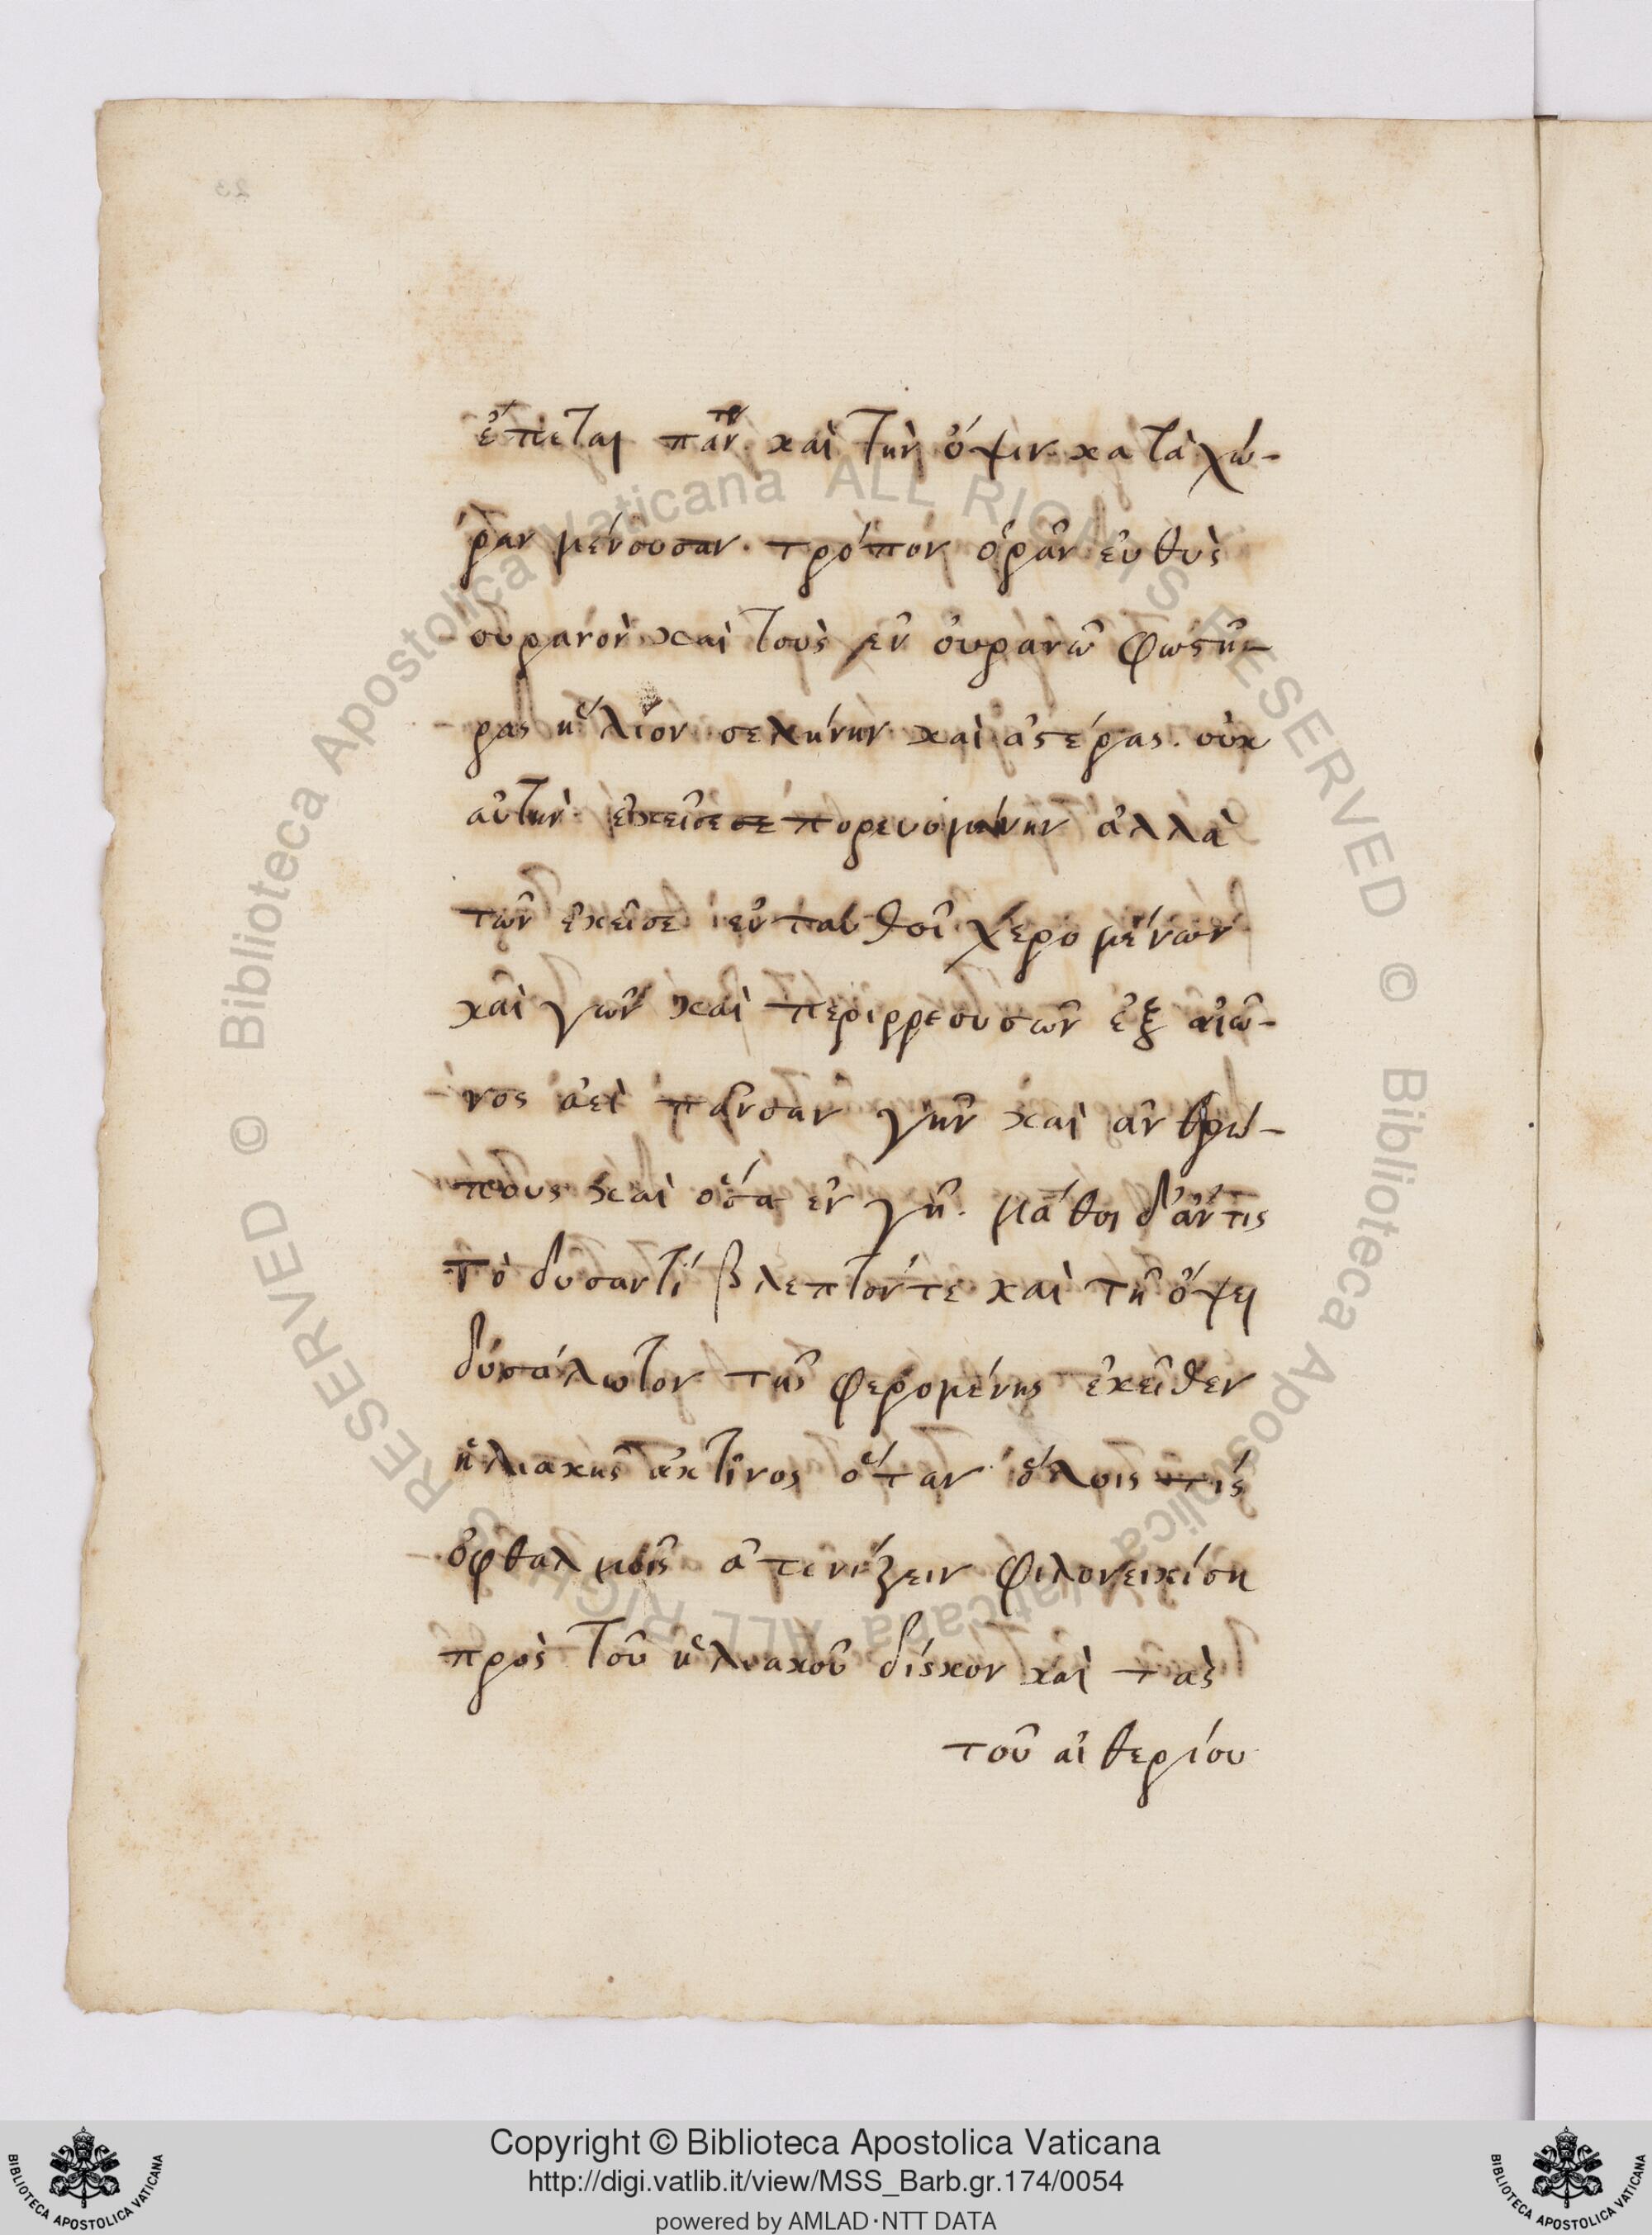 23
ἕπεται πᾶν καὶ τὴν ὄψιν κατὰ χώ-
ραν μένουσαν· τρόπον ὁρᾶν εὐθὺς
οὐρανὸν καὶ τοὺς ἐν οὐρανῶ φωστῆ-
ρας ἥλιον σελήνην καὶ ἀστέρας. οὐκ
αὐτὴν ἐκεῖσε πορευομένην ἀλλὰ
τῶν ἐκεῖσε ἐνταυθοῖ χερομένων
καὶ γῶν καὶ περιρρεουσῶν ἐξ αἰῶ-
νος ἀεὶ πᾶσαν γῆν καὶ ἀνθρώ-
πους καὶ ὅσα ἐν γῆ. μάθοι δ' ἄν τις
τὸ δυσαντίβλεπτόν τε καὶ τῆ ὄψει
δυσάλωτον τῆς φερομένης ἐκεῖθεν
ἡλιακῆς ἀκτῖνος ὅταν ὅλοις τίς
ὀφθαλμοῖς ἀτενίζειν φιλονεικήση
πρὸς τοῦ ἡλιακοῦ δίσκον καὶ τὰς
τοῦ αἰθερίου
Biblioteca Apostolica Vaticana ALL RIGHTS RESERVED ©
Biblioteca Apostolica Vaticana ALL RIGHTS RESERVED ©
Copyright © Biblioteca Apostolica Vaticana
http://digi.vatlib.it/view/MSS_Barb.gr.174/0054
powered by AMLAD·NTT DATA
BIBLIOTECA APOSTOLICA VATICANA
BIBLIOTECA APOSTOLICA VATICANA